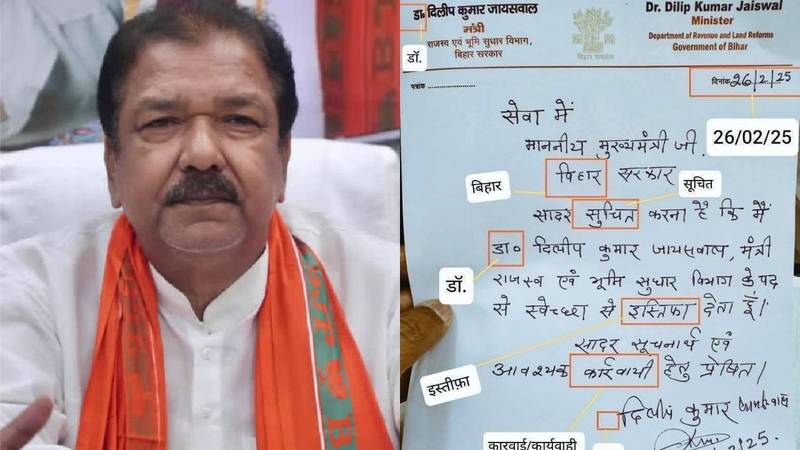 डा० दिलीप कुमार जायसवाल
मंत्री
राजस्व एवं भूमि सुधार विभाग,
बिहार सरकार
डॉ.
Dr. Dilip Kumar Jaiswal
Minister
Department of Revenue and Land Reforms
Government of Bihar
बिहार सरकार
पत्रांक
दिनांक 26/2/25
26/02/25
सेवा में
माननीय मुख्यमंत्री जी.
विहार सरकार
बिहार
सूचित
सादर सुचित करना है कि मैं
डा० दिलीप कुमार जायसवाल, मंत्री
डॉ.
राजस्व एवं भूमि सुधार विभाग के पद
से स्वेच्छा से इस्तिफा देता हूँ।
इस्तीफ़ा
सादर सूचनार्थ एवं
आवश्यक कार्रवायी हेतु प्रेषित।
दिलीप कुमार
कारवाई/कार्यवाही